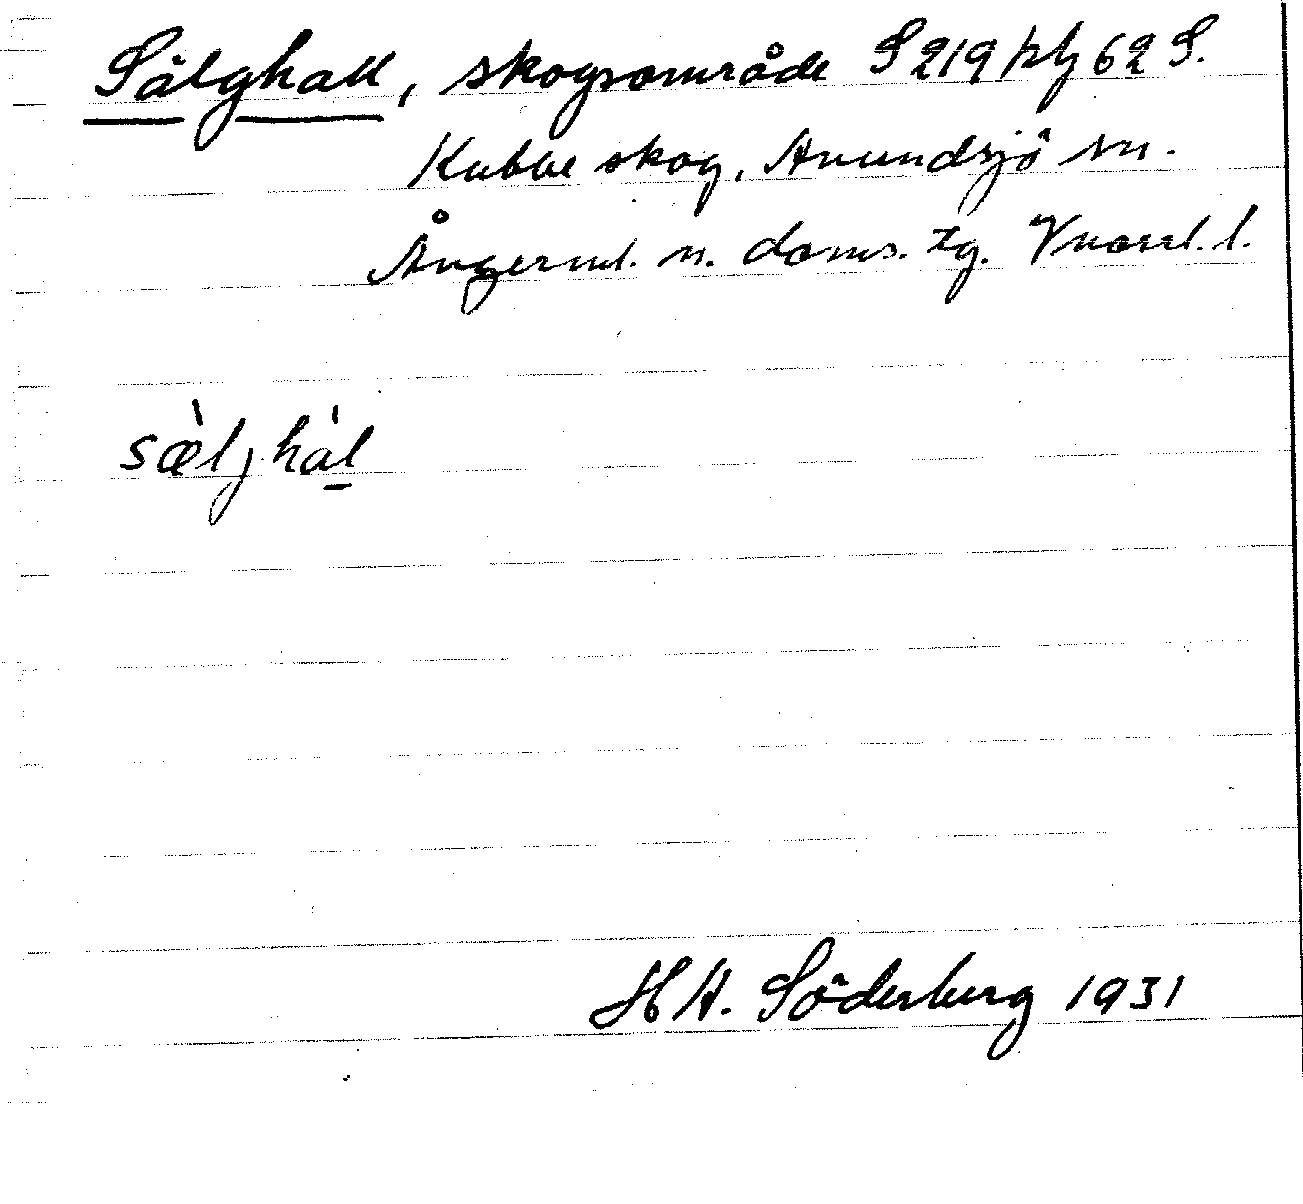 Sälghall, skogsområde S 219 plg 62 S.
Kubbe skog, Anundsjö sn.
Ångerml. n. doms. tg. Vnorrl. l.
sæ̀ljhàl
H A. Söderberg 1931